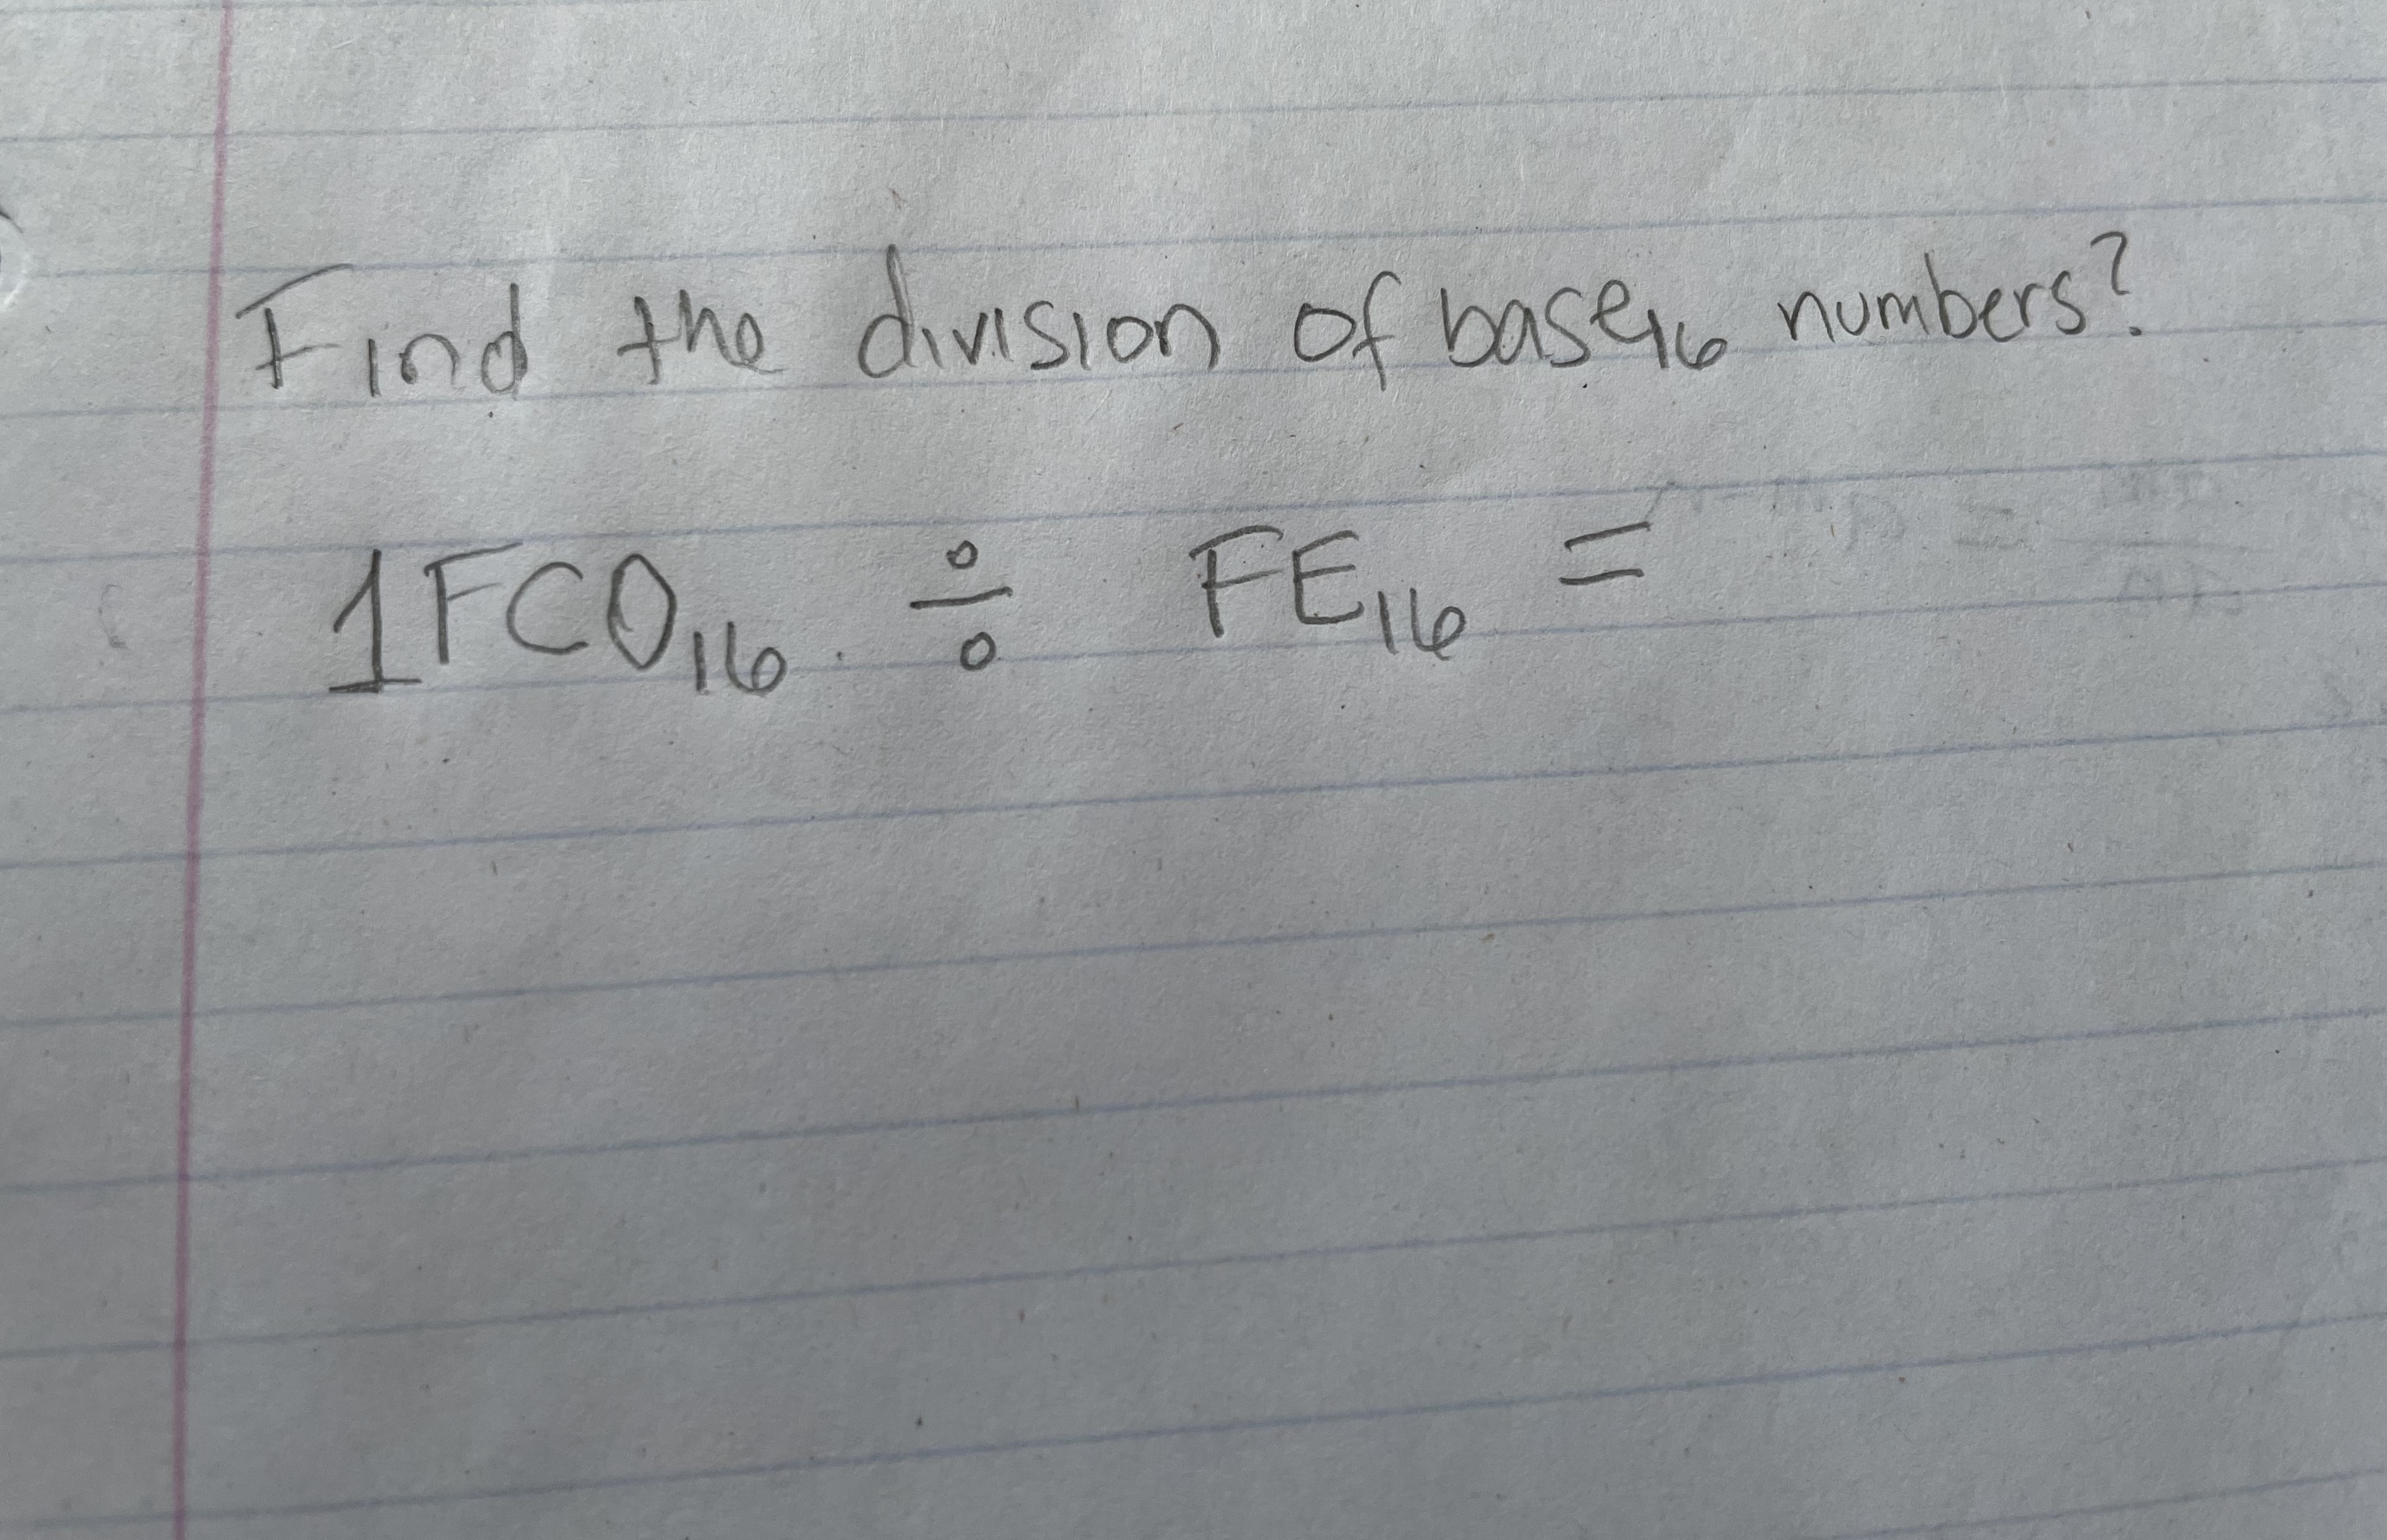 Find the division of base₁₆ numbers?
1FC0₁₆ ÷ FE₁₆ =